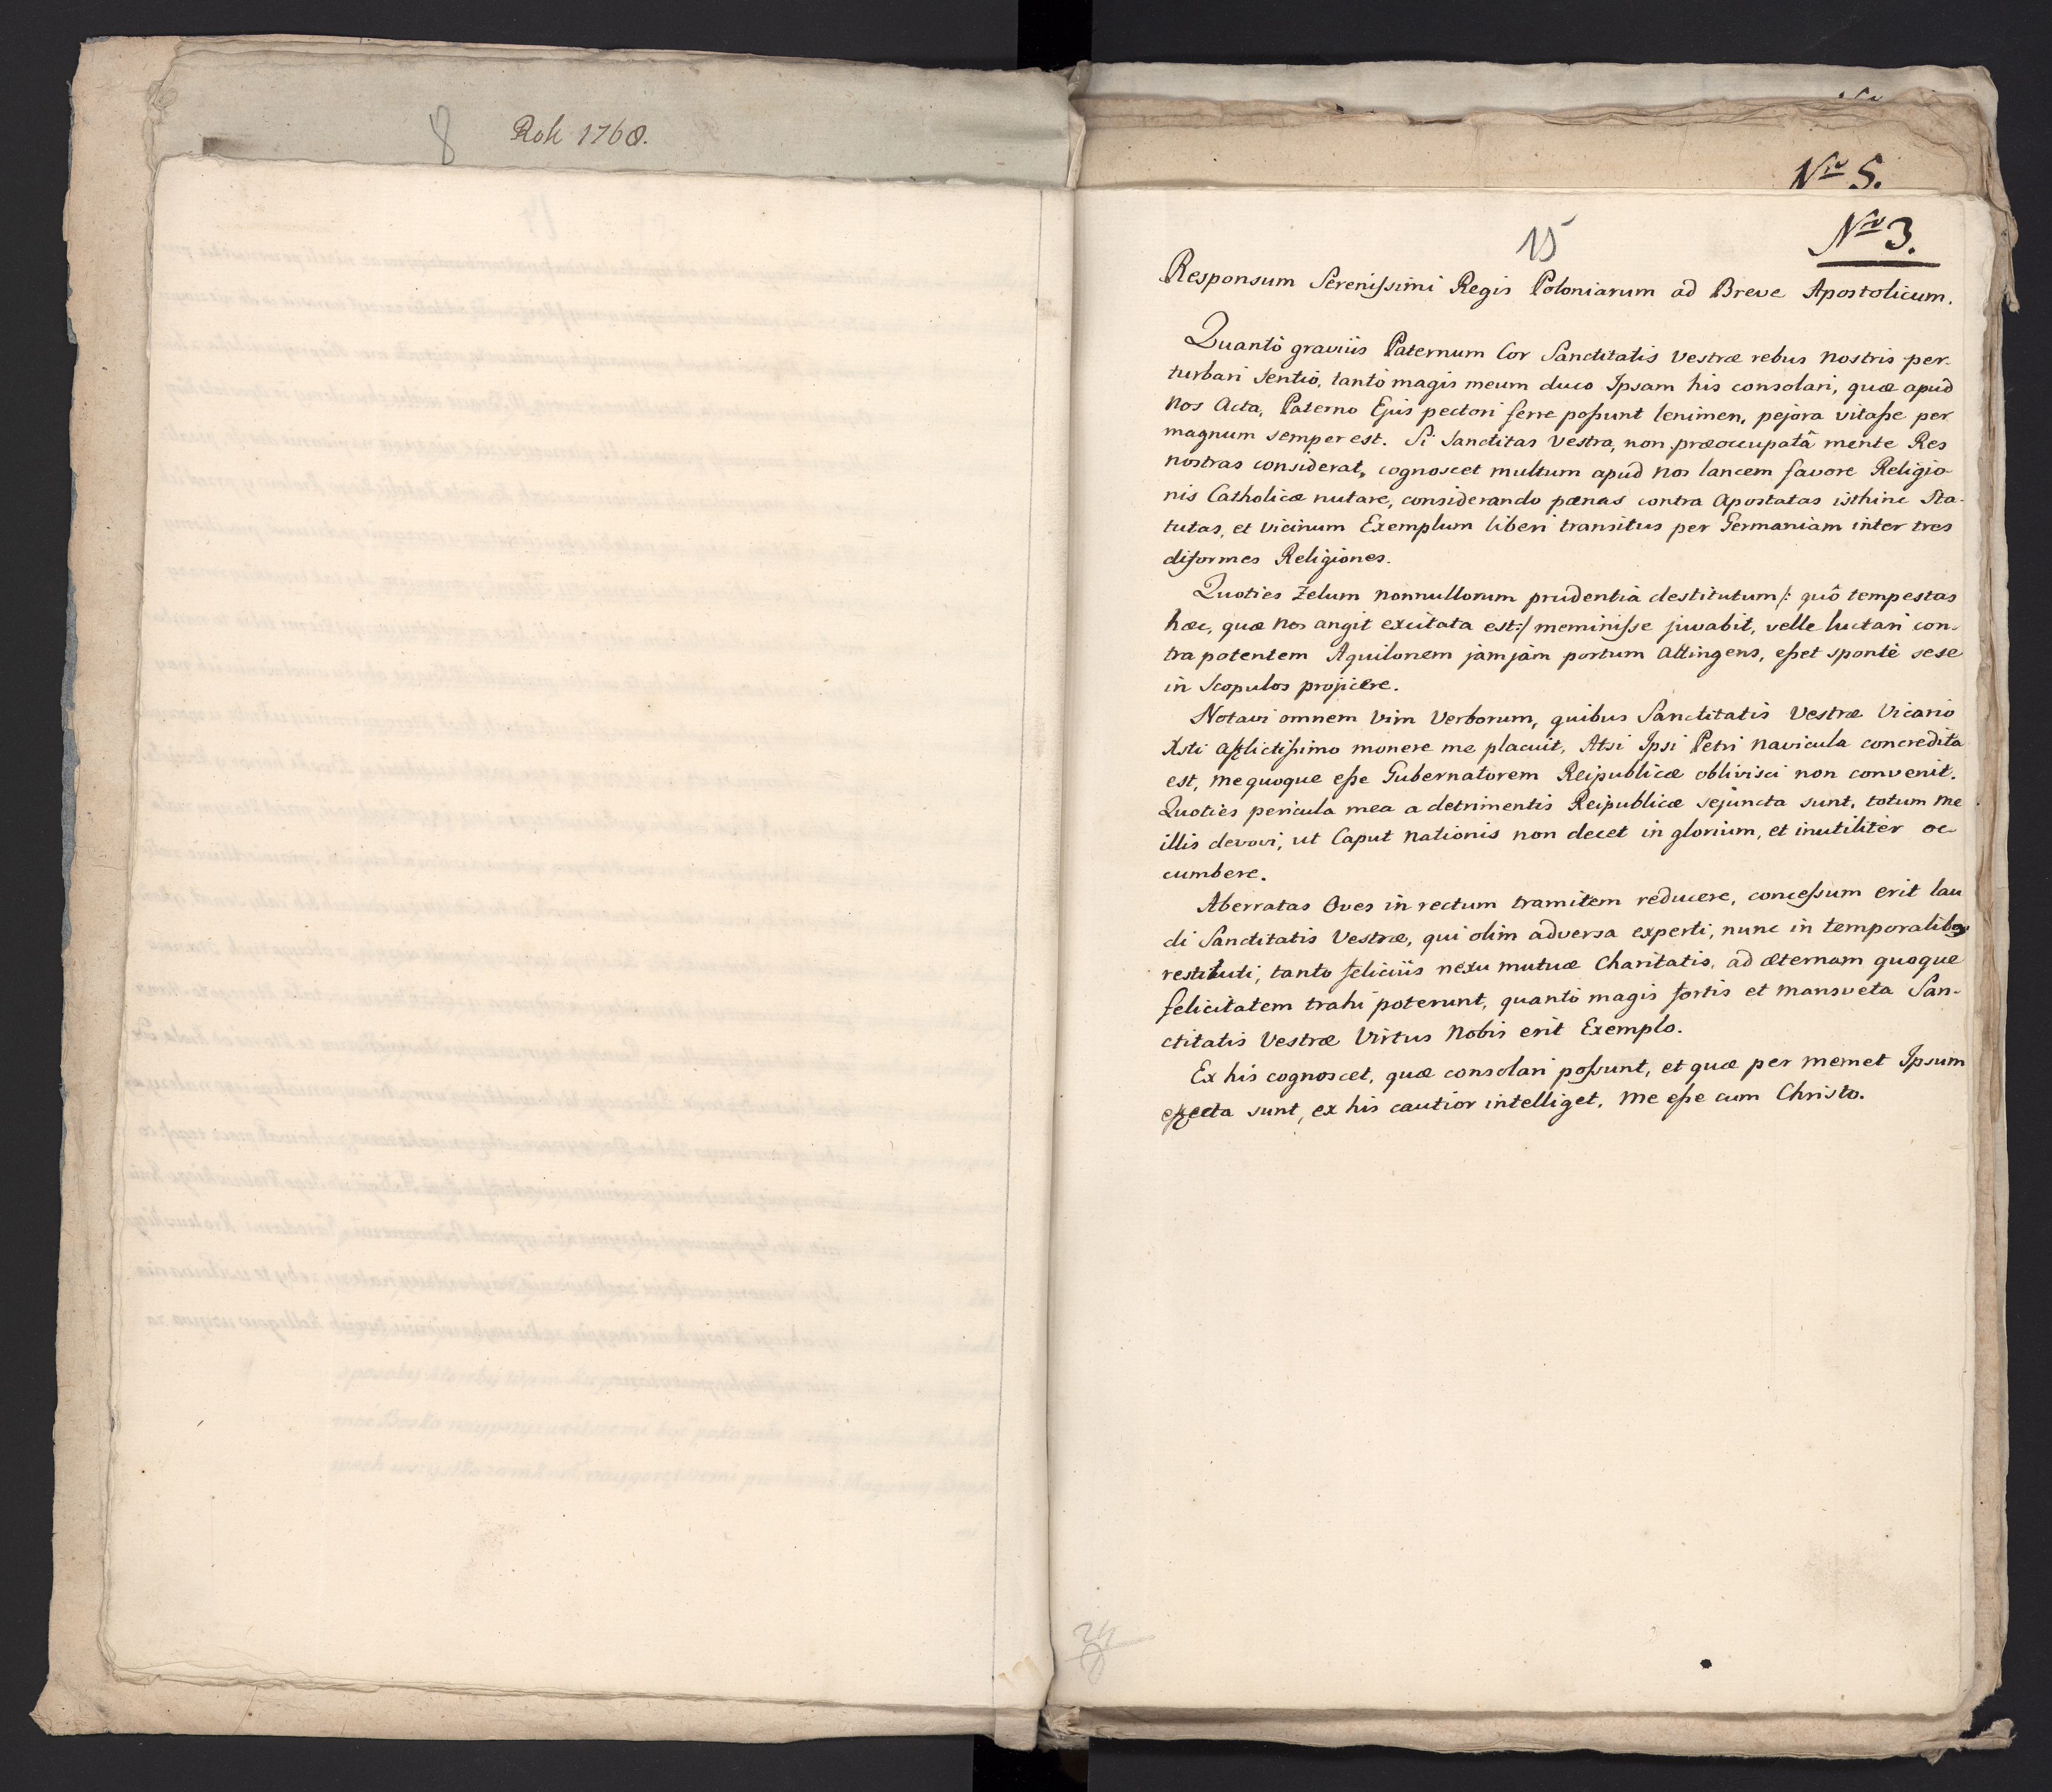 8 Rok 1768.
Nro 5.
15 Nro 3.
Responsum Serenissimi Regis Poloniarum ad Breve Apostolicum.
Quantò graviùs Paternum Cor Sanctitatis Vestræ rebus nostris per-
turbari sentio, tantò magis meum duco Ipsam his consolari, quæ apud
Nos Acta, Paterno Ejus pectori ferre possunt lenimen, pejora vitasse per
magnum semper est. Si Sanctitas Vestra, non præoccupatâ mente Res
nostras considerat, cognoscet multum apud nos lancem favore Religio-
nis Catholicæ nutare, considerando pænas contra Apostatas isthinc Sta-
tutas, et vicinum Exemplum liberi transitus per Germaniam inter tres
difformes Religiones.
Quoties Zelum nonnullorum prudentiâ destitutum /: quô tempestas
hæc, quæ nos angit excitata est :/ meminisse juvabit, velle luctari con-
tra potentem Aquilonem jamjàm portum attingens, esset spontè sese
in Scopulos projicere.
Notavi omnem Vim Verborum, quibus Sanctitatis Vestræ Vicario
Xsti afflictissimo monere me placuit, Atsi Ipsi Petri navicula concredita
est, me quoque esse Gubernatorem Reipublicæ oblivisci non convenit.
Quoties pericula mea a detrimentis Reipublicæ sejuncta sunt, totum me
illis devovi, ut Caput Nationis non decet in glorium, et inutiliter oc-
cumbere.
Aberratas Oves in rectum tramitem reducere, concessum erit lau
di Sanctitatis Vestræ, qui olim adversa experti, nunc in temporalibus
restituti, tanto feliciùs nexu mutuæ Charitatis, ad æternam quoque
felicitatem trahi poterunt, quantò magis fortis et mansveta San-
ctitatis Vestræ Virtus Nobis erit Exemplo.
Ex his cognoscet, quæ consolari possunt, et quæ per memet Ipsum
effecta sunt, ex his cautior intelliget, me esse cum Christo.